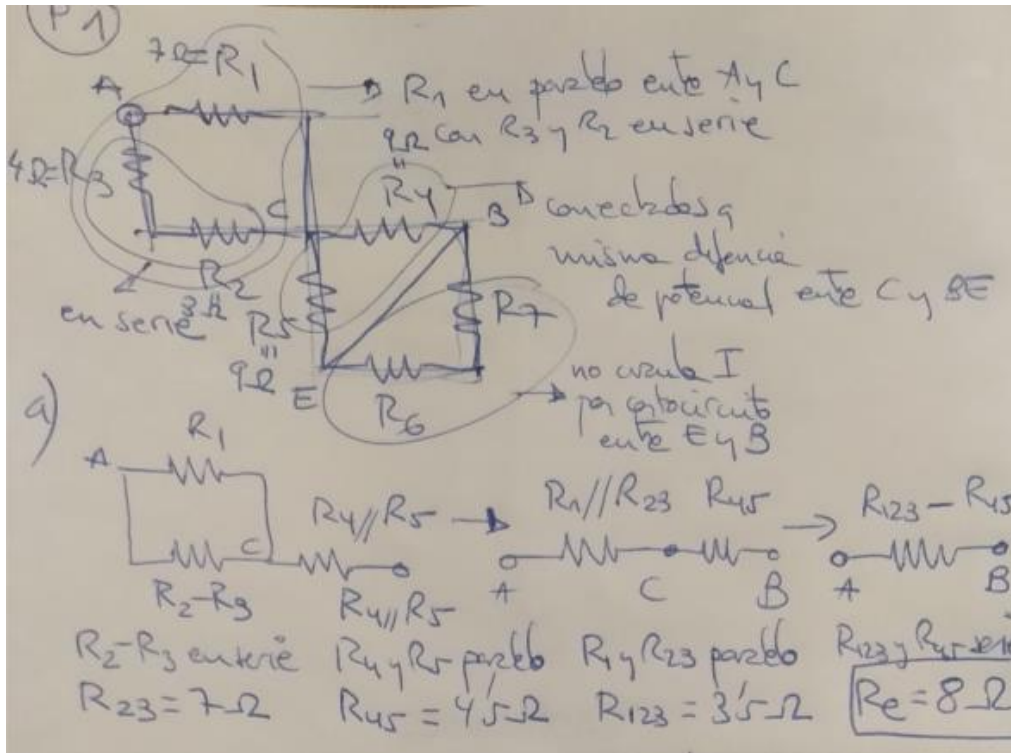 P1
7Ω=R1
A
→ R1 en paralelo entre A y C
9Ω con R3 y R2 en serie
"
4Ω=R3
R4
C
B
→ conectados a
misma difencia
de potencial entre C y BE
R2
3Ω
en serie
R5
"
9Ω
R7
E
R6
→ no circula I
por cortocircuito
entre E y B
a)
R1
A
C
R2-R3
R4//R5 →
R4//R5
R1//R23 R45 →
A C B
R123-R45
A B
R2-R3 en serie R4 y R5 paralelo R1 y R23 paralelo R123 y R45 serie
R23=7Ω R45=4'5Ω R123=3'5Ω Re=8Ω